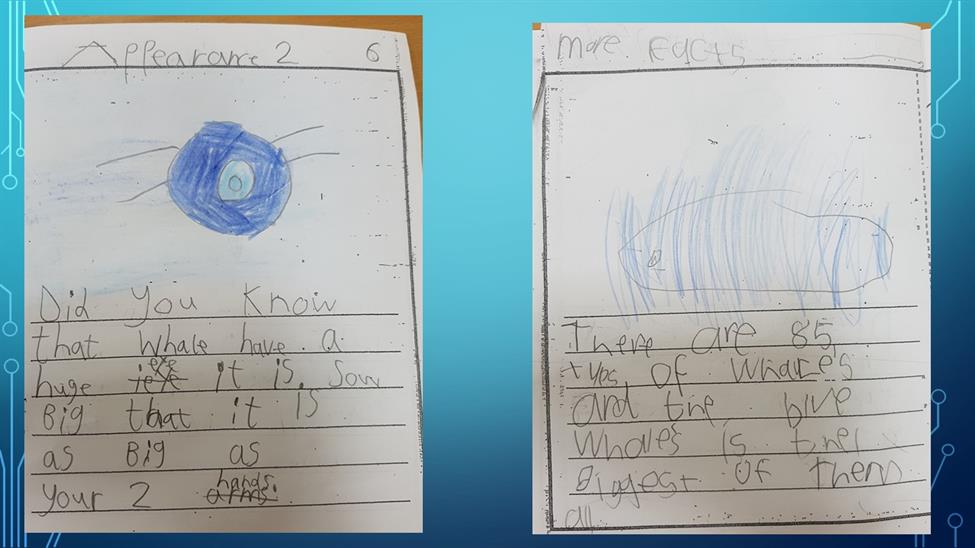 Appearance 2 6
Did You Know
that whale have a
huge eye it is. Sow
Big that it is
as Big as
your 2 hands.
More Facts
There are 85
types of whales
and the blue
Whales is the
Biggest of them
all